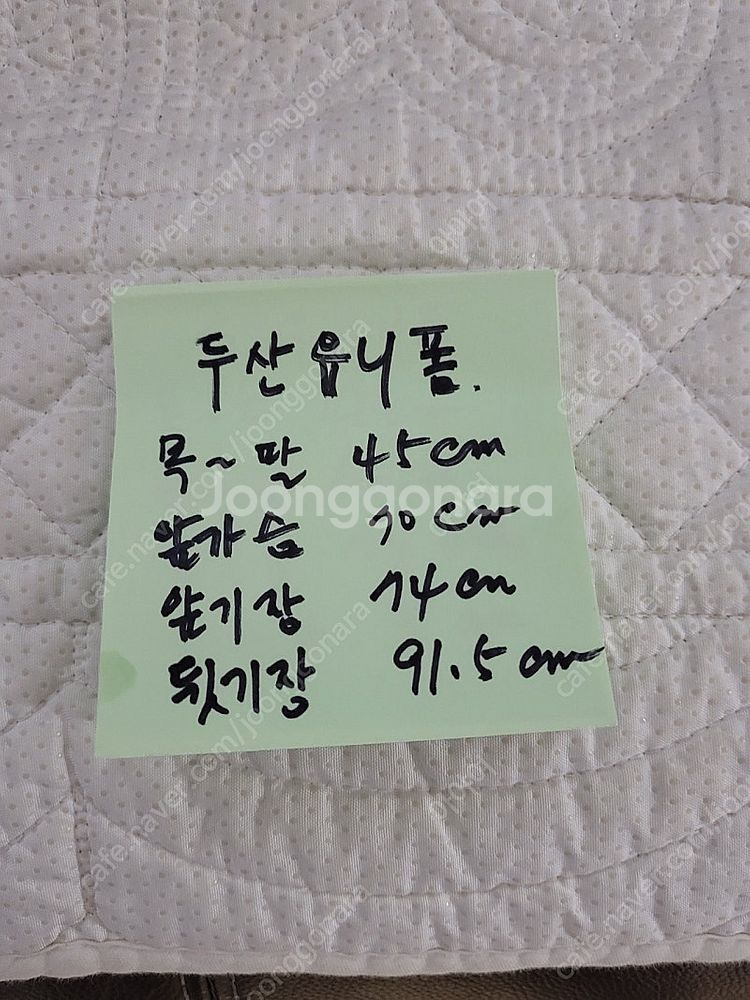 두산 유니폼.
목~팔 45cm
앞가슴 70cm
앞기장 74cm
뒷기장 91.5cm
Joonggonara
cafe.naver.com/joonggonara